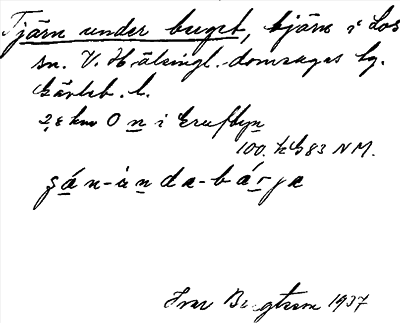 Tjärn under berget, tjärn i Los
sn. V. Hälsingl. domsagas tg.
Gävleb. l.
2,8 km O n i Grufbyn
100. h G 83 NM.
ʒá n-ùnda-bárja
Ivar Bengtsson 1937